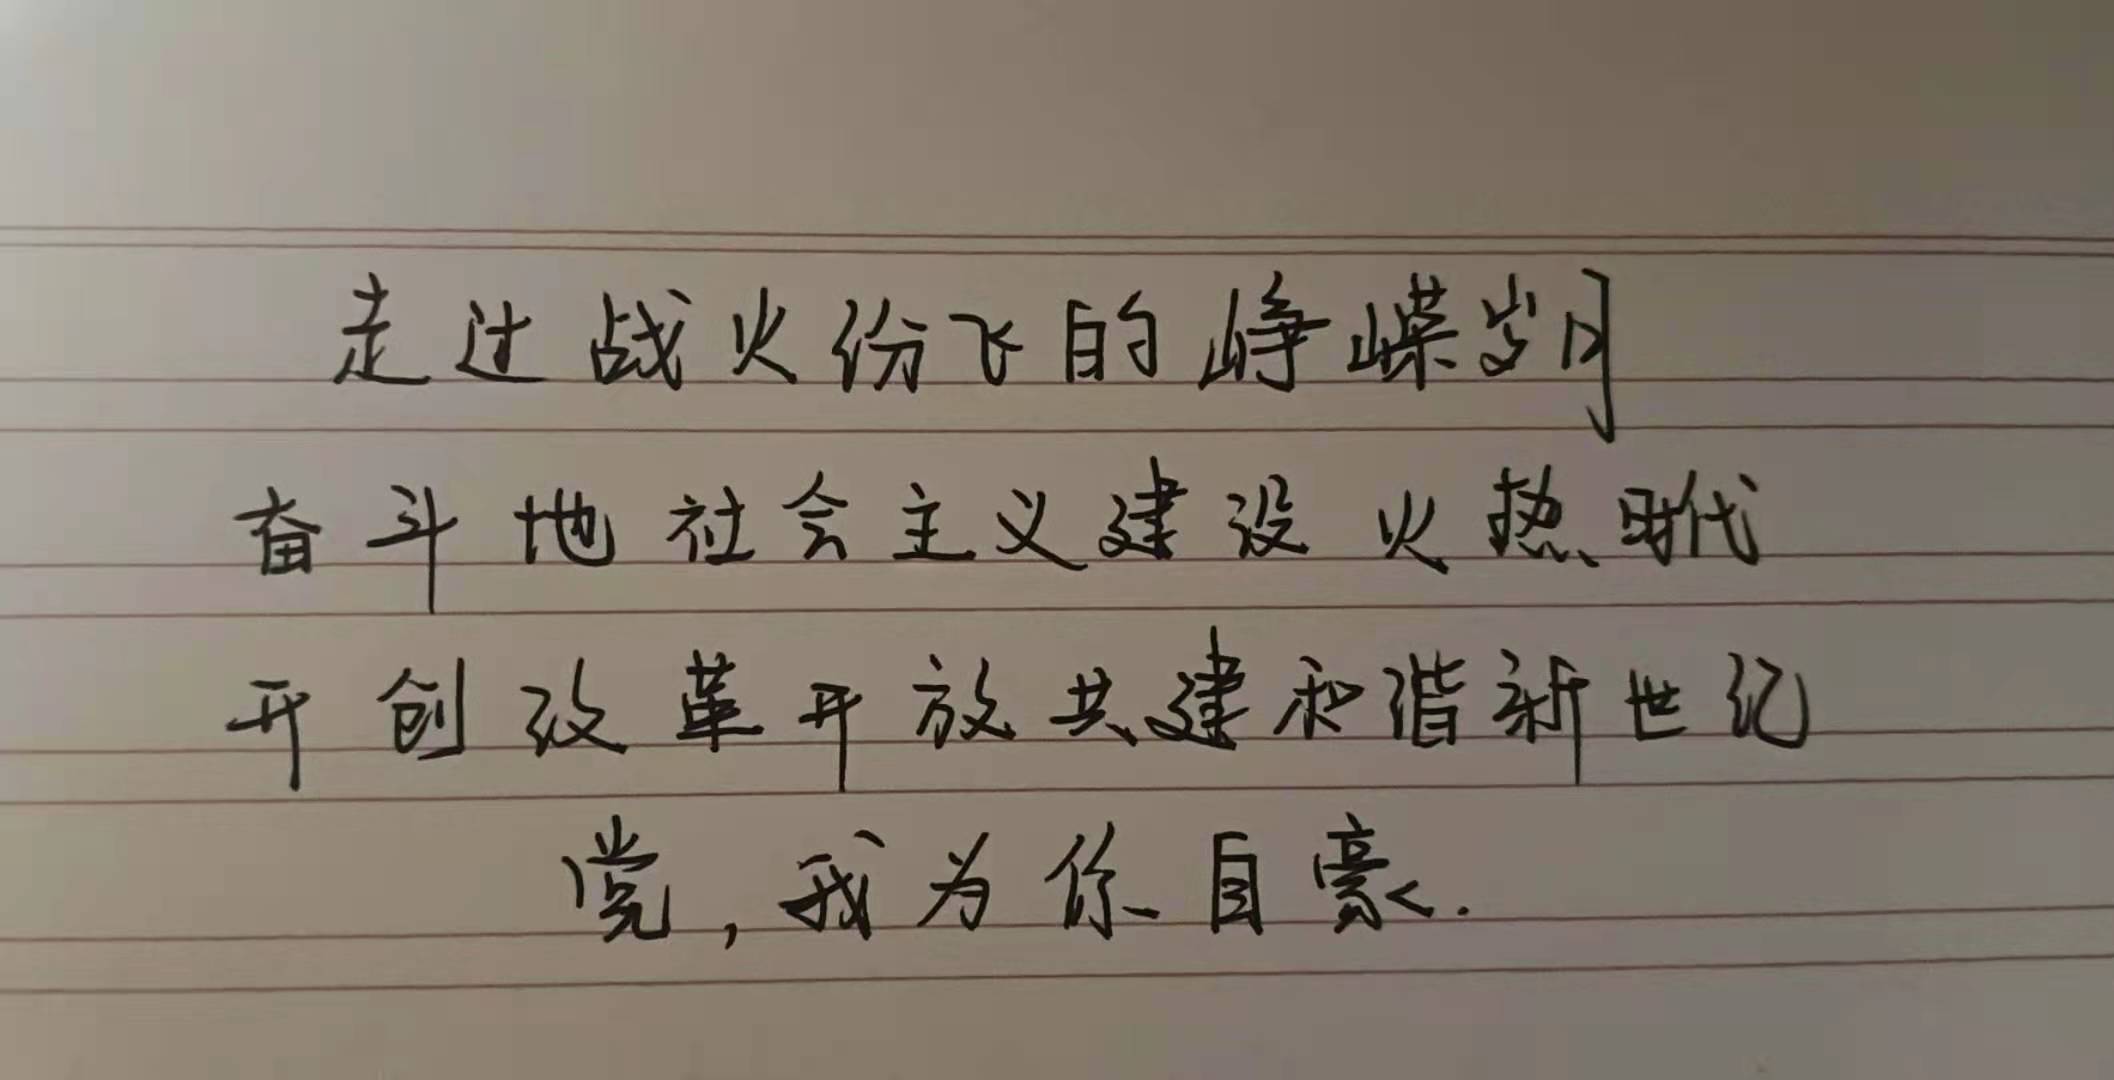 走过战火份飞的峥嵘岁月
奋斗地社会主义建设火热时代
开创改革开放共建和谐新世纪
党,我为你自豪.